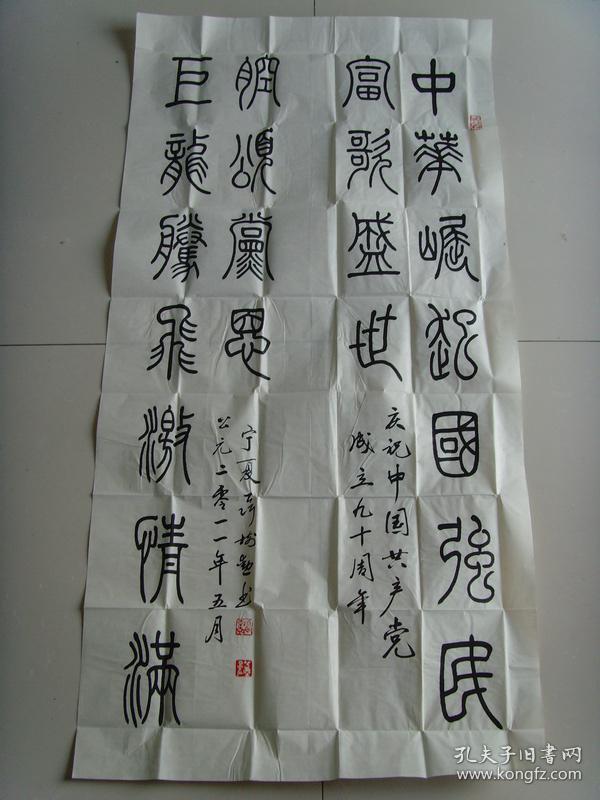 中華崛起國強民
富歌盛世
庆祝中国共产党
成立九十周年
巨龍騰飛激情滿
腔頌黨恩
宁夏
书
公元二零一一年五月
孔夫子旧书网
www.kongfz.com